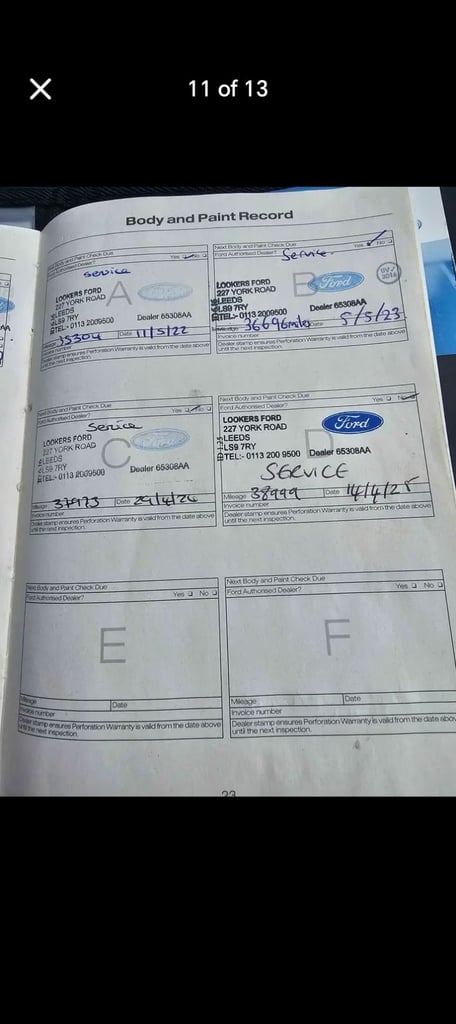 11 of 13
Body and Paint Record
Next Body and Paint Check Due
Ford Authorised Dealer? Yes No
Service
A
LOOKERS FORD
227 YORK ROAD
LEEDS
LS9 7RY
TEL:- 0113 2009500
Dealer 65308AA
Ford
Mileage 35304 Date 11/5/22
Invoice number
Dealer stamp ensures Perforation Warranty is valid from the date above
until the next inspection.
Next Body and Paint Check Due
Ford Authorised Dealer? Yes No
Service
B
LOOKERS FORD
227 YORK ROAD
LEEDS
LS9 7RY
TEL:- 0113 2009500
Dealer 65308AA
Ford
Mileage 36696miles Date 5/5/23
Invoice number
Dealer stamp ensures Perforation Warranty is valid from the date above
until the next inspection.
Next Body and Paint Check Due
Ford Authorised Dealer? Yes No
Service
C
LOOKERS FORD
227 YORK ROAD
LEEDS
LS9 7RY
TEL:- 0113 2009500
Dealer 65308AA
Ford
Mileage 37975 Date 29/4/24
Invoice number
Dealer stamp ensures Perforation Warranty is valid from the date above
until the next inspection.
Next Body and Paint Check Due
Ford Authorised Dealer? Yes No
D
LOOKERS FORD
227 YORK ROAD
LEEDS
LS9 7RY
TEL:- 0113 200 9500
Dealer 65308AA
Ford
SERVICE
Mileage 38999 Date 14/4/25
Invoice number
Dealer stamp ensures Perforation Warranty is valid from the date above
until the next inspection.
Next Body and Paint Check Due
Ford Authorised Dealer? Yes No
E
Mileage Date
Invoice number
Dealer stamp ensures Perforation Warranty is valid from the date above
until the next inspection.
Next Body and Paint Check Due
Ford Authorised Dealer? Yes No
F
Mileage Date
Invoice number
Dealer stamp ensures Perforation Warranty is valid from the date above
until the next inspection.
23